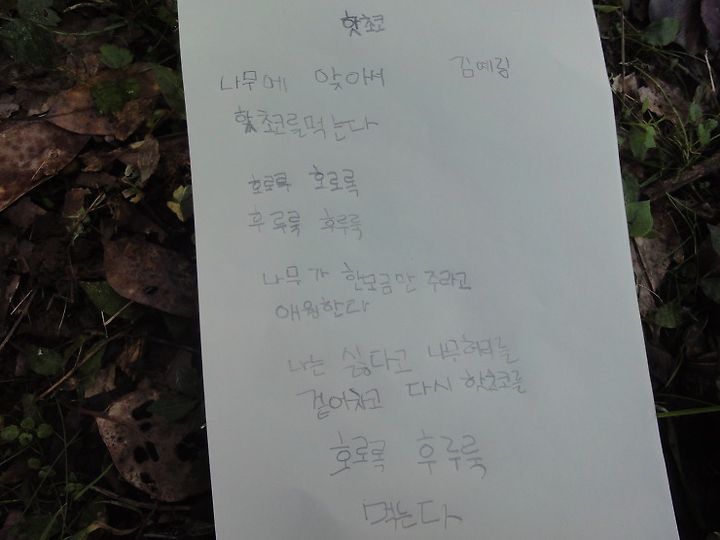 핫초코
나무에 앉아서 김예림
핫초코를먹는다
호로록 호로록
후루룩 후루룩
나무가 한모금만 주라고
애원한다
나는 싫다고 나무허리를
겉어차고 다시 핫초코를
호로록 후루룩
먹는다